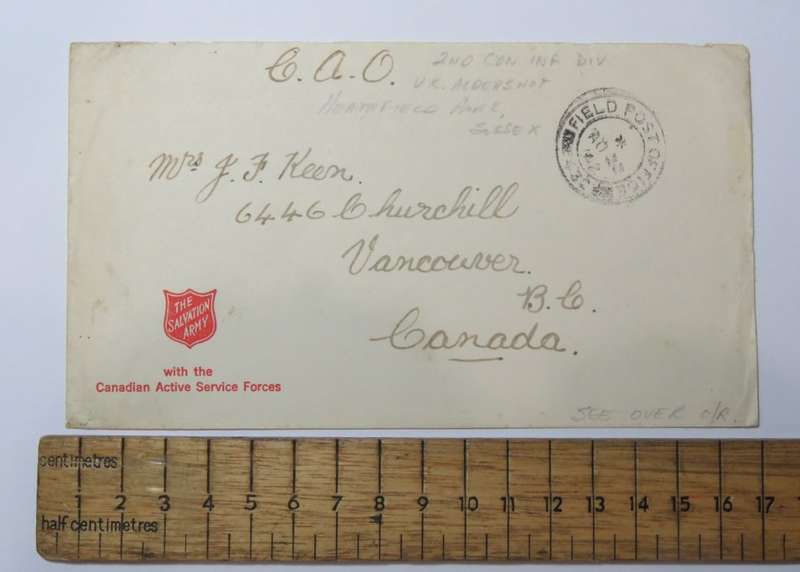 C.A.O.
2ND CDN INF DIV
ALDERSHOT
HEATHFIELD PARK,
SUSSEX
FIELD POST OFFICE
Mrs J. F. Keen.
6446 Churchill
Vancouver.
B.C.
Canada.
THE
SALVATION
ARMY
with the
Canadian Active Service Forces
SEE OVER
centimetres
1 2 3 4 5 6 7 8 9 10 11 12 13 14 15 16 17
half centimetres